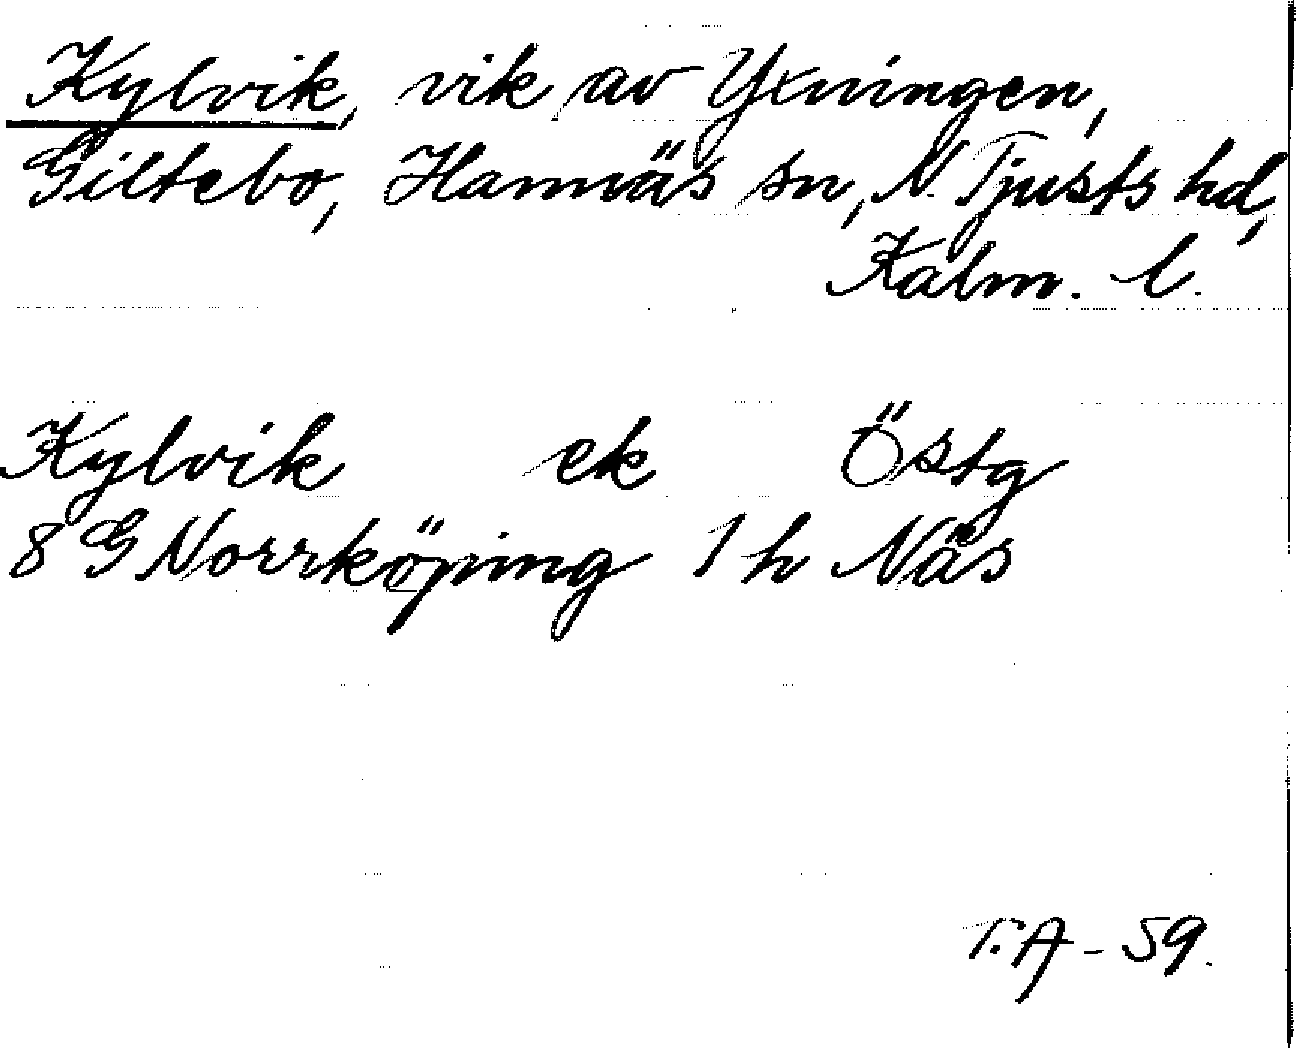 Kylvik, vik av Yxningen,
Giltebo, Hannäs sn, N. Tjusts hd,
Kalm. l.
Kylvik ek Östg
8 G Norrköping 1 h Näs
T.A - 59.